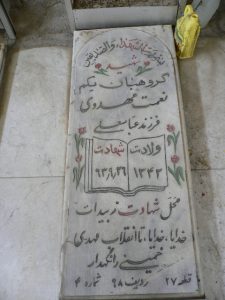 شهید
گروهبان یکم
نعمت مهدوی
فرزند عباسعلی
ولادت شهادت
۱۳۴۲
محل شهادت زبیدات
خدایا، خدایا، تا انقلاب مهدی
خمینی را نگهدار
قطعه ۲۷ ردیف ۹۸ شماره ۴